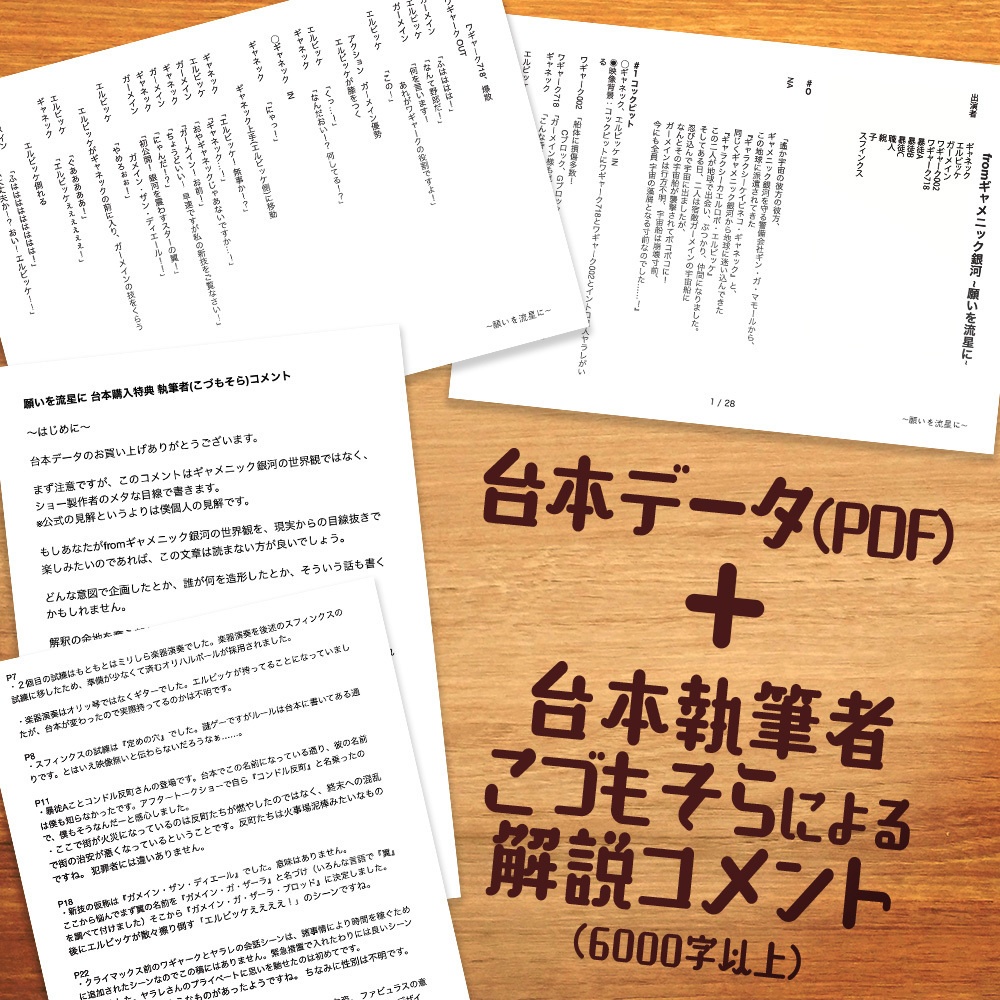 fromギャメニック銀河 ~願いを流星に~
出演者
ギャネック
エルビッケ
ガーメイン
ワギャーク002
ワギャーク718
暴徒A
暴徒B
暴徒C
職人
銘
子
スフィンクス
#0
NA
「遥か宇宙の彼方の彼方、
ギャメニック銀河を守る警備会社ギン・ガ・マモールから、
この地球に派遣されてきた
『ギャラクシーケイビネコ・ギャネック』と、
同じくギャメニック銀河から地球に迷い込んできた
『ギャラクシーカエルロボ・エルビッケ』
この二人が地球で出会い、ぶつかり、仲間になりました。
そしてある日、二人は宿敵ガーメインの宇宙船に
忍び込んで宇宙に出ましたが、
なんとその宇宙船が襲撃されてボコボコに!
ガーメインは行方不明、宇宙船は崩壊寸前、
今にも全員 宇宙の藻屑となる寸前なのでした……!」
#1 コックピット
○ギャネック、エルビッケ IN
◉映像背景:コックピットにワギャーク718とワギャーク002とイントロ
る
ワギャーク002 「船体に損傷多数!
Cブロック、Gブロッ
ワギャーク718 「ガーメイン様も
ギャネック
エルビッケ 「こんな
1 / 28
~願いを流星に~
ワギャーク718 爆散
ワギャークOUT
ガーメイン 「ふははははー!」
エルビッケ 「なんて野郎だ…!」
ガーメイン 「何を言います!
あれがワギャークの役割ですよ…!」
エルビッケ 「この…!」
アクション ガーメイン優勢
エルビッケが膝をつく
エルビッケ 「くっ…!」
ギャネック 「なんだおい…? 何してる…?」
○ギャネック IN
ギャネック 「はゃっ!」
ギャネック上手(エルビッケ側)に移動
ギャネック 「エルビッケ! 無事か…?」
エルビッケ 「ギャネック…!」
ガーメイン 「おやギャネックじゃあないですか…!」
ギャネック 「ガーメイン! お前…!」
ガーメイン 「ちょうどいい! 早速ですが私の新技をご覧なさい!」
ギャネック 「にゃんだ…!?」
ガーメイン 「初公開! 銀河を震わすスターの翼!
ガーメイン・ザン・ディエール!!」
ギャネック 「やめろぉぉ!」
エルビッケがギャネックの前に入り、ガーメインの技をくらう
エルビッケ 「ぐああああああ!」
ギャネック 「エルビッケぇぇぇぇぇぇぇ!」
エルビッケ倒れる
~願いを流星に~
願いを流星に 台本購入特典 執筆者(こづもそら)コメント
〜はじめに〜
台本データのお買い上げありがとうございます。
まず注意ですが、このコメントはギャメニック銀河の世界観ではなく、
ショー製作者のメタな目線で書きます。
※公式の見解というよりは僕個人の見解です。
もしあなたがfromギャメニック銀河の世界観を、現実からの目線抜きで
楽しみたいのであれば、この文章は読まない方が良いでしょう。
どんな意図で企画したとか、誰が何を造形したとか、そういう話も書く
かもしれません。
解釈の余地を
P7
・2個目の試練はもともとはミリしら楽器演奏でした。楽器演奏を後述のスフィンクスの
試練に移したため、準備が少なくて済むオリハルボールが採用されました。
・楽器演奏はオリッ琴ではなくギターでした。エルビッケが持ってることになっていまし
たが、台本が変わったので実際持ってるのかは不明です。
P8
・スフィンクスの試練は『定めの穴』でした。謎ゲーですがルールは台本に書いてある通
りです。とはいえ映像無いと伝わらないだろうなぁ……。
P11
・暴徒Aことコンドル反町さんの登場です。台本でこの名前になっている通り、彼の名前
は僕も知らなかったです。アフタートークショーで自ら『コンドル反町』と名乗ったの
で、僕もそうなんだーと感心しました。
・ここで街が火災になっているのは反町たちが燃やしたのではなく、終末への混乱
で街の治安が悪くなっているということです。反町たちは火事場泥棒みたいなもの
ですね。犯罪者には違いありません。
P18
・新技の仮称は『ガメイン・ザン・ディエール』でした。意味はありません。
ここから悩んでまず翼の名前を『ガメイン・ガ・ザーラ』と名づけ(いろんな言語で『翼』
を調べて付けました)そこから『ガメイン・ガ・ザーラ・ブロッド』に決定しました。
後にエルビッケが散々擦り倒す「エルビッケええええ!」のシーンですね。
P22
・クライマックス前のワギャークとヤラレの会話シーンは、諸事情により時間を稼ぐため
に追加されたシーンなのでこの稿にはありません。緊急措置で入れたわりには良いシーン
した。ヤラレさんのプライベートに思いを馳せたのは初めてです。
ものがあったようですね。ちなみに性別は不明です。
台本データ(PDF)
+
台本執筆者
こづもそらによる
解説コメント
(6000字以上)